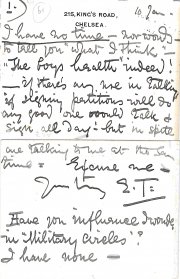 1.
215, KING'S ROAD,
CHELSEA.
10 June
I have no time – nor words
to tell you what I think –
"The boys health" indeed!
– if there's any use in talking
of signing petitions will do
any good one would talk &
sign all day – but in spite
are talking to me at the same
time = Excuse me –
E. T.
Have you influence I wonder
in "Military Circles"?
I have none –